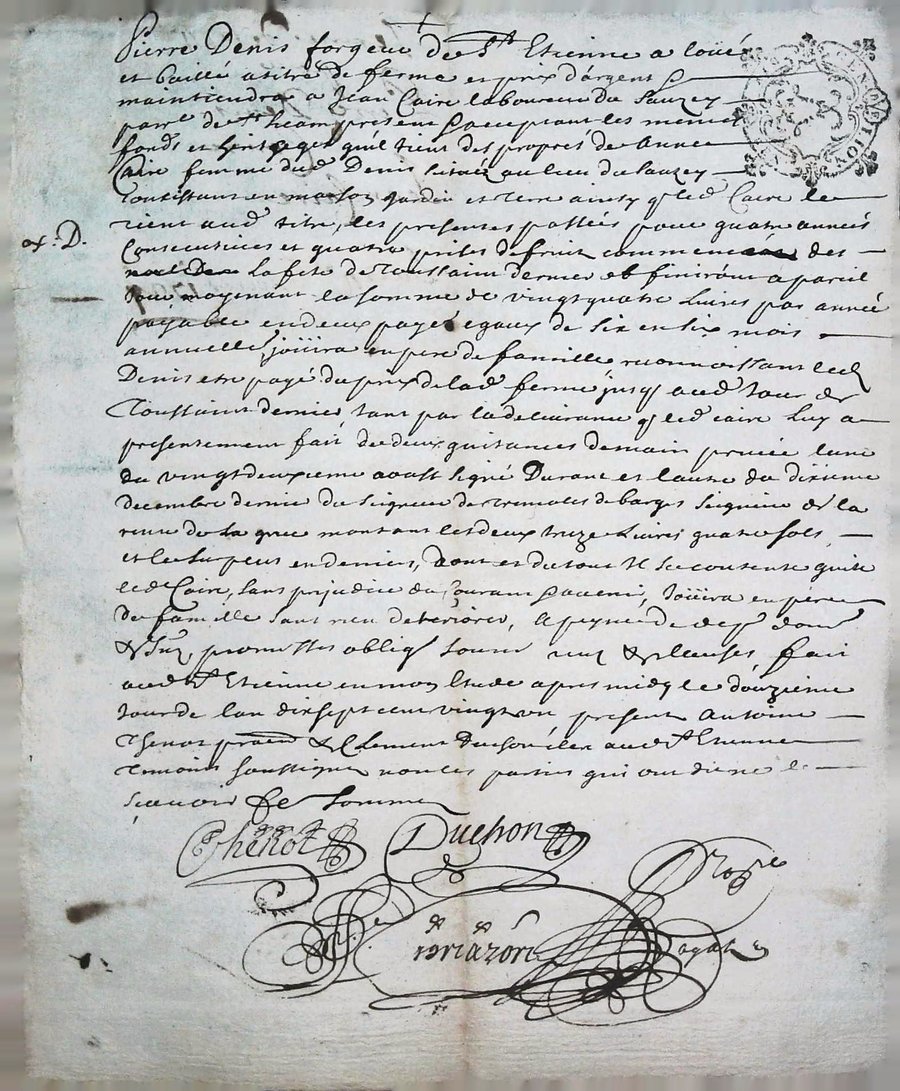 Pierre Denis forgeur de St Etienne a loüé
et baillé a titre de ferme et prix d'argent p
maintiendra a Jean Caire laboureur du Sauzey
parr. de St heam present & acceptant les memes
fonds et heritages qu'il tient des propres de Annee
Caire femme dud. Denis situés au lieu du Sauzey
Consistant en maison Jardin et terre ainsy q led Caire le
tient aud titre, les presentes passées pour quatre années
of. D.
Consecutives et quatre prises de fruit des
La fete de Toussaint dernier et finiront a pareil
Jour moyenant la somme de vingt quatre Livres par année
payable en deux payes egaux de six en six mois
annuellet joüira en pere de famille reconnoissant led
Denis etre payé du prix de lad ferme jusq aud Jour de
Toussaint dernier tant par la delivrance q led Caire luy a
presentement fait de deux quitances de main privée lune
du vingt deuxieme aoust signé Durant et lautre du dixieme
decembre dernier du Seigneur de de barges Seigneur de la
montant les deux treze Livres quatre sols
et le surplus en deniers, dont et du tout Il se contente quite
led Caire, sans prejudice du Courant & avenir, Joüira en pere
de famille sans rien deteriorer, a peyne de dep dom
& promettes oblig soum & clauses fait
aud St Etienne en mon Etude apres midy le douzieme
Jour de lan dix sept cent vingt un present Antoine
Thenot & Clement Duchon clerc aud St Etienne
temoins soussignes non les parties qui ont dit ne le
sçavoir de ce sommés
Thenot Duchon